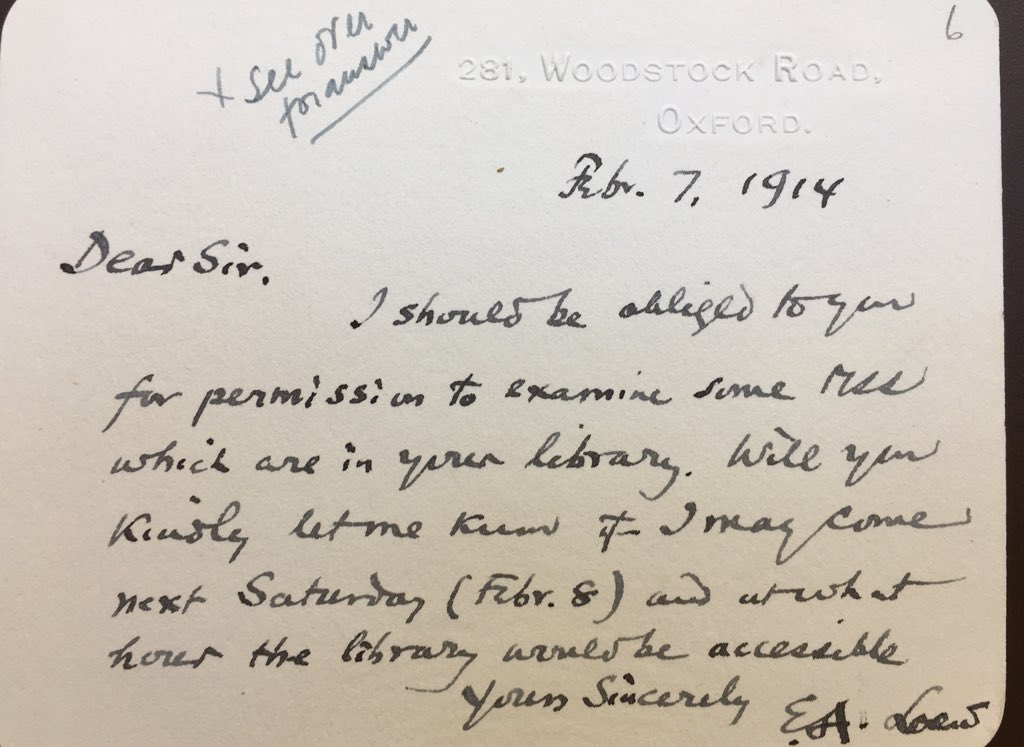 + see over
for answer
6
281, WOODSTOCK ROAD,
OXFORD.
Febr. 7, 1914
Dear Sir.
I should be obliged to you
for permission to examine some MSS
which are in your library. Will you
kindly let me know if I may come
next Saturday (Febr. 8) and at what
hour the library would be accessible
Yours Sincerely E.A. Loew